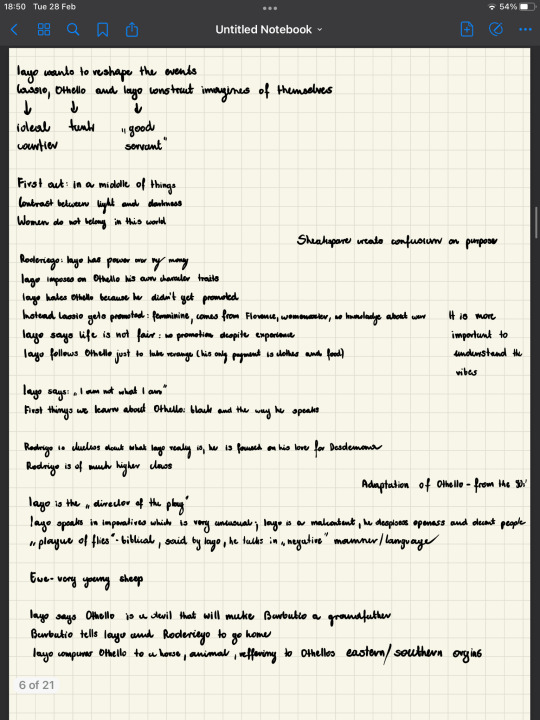 18:50 Tue 28 Feb
54%
Untitled Notebook
Iago wants to reshape the events
Cassio, Othello and Iago construct imagines of themselves
ideal „good
courtier servant"
First act: in a middle of things
Contrast between light and darkness
Women do not belong in this world
Sheakspare creats confusium on purpose
Roderiego: Iago has power over my money
Iago imposes on Othello his own character traits
Iago hates Othello because he didn't get promoted
Instead Cassio gets promoted: femminine, comes from Florence, womenwater, no knowledge about war
It is more
important to
understand the
vibes
Iago says life is not fair: no promotion despite experience
Iago follows Othello just to take revange (his only payment is clothes and food)
Iago says: „I am not what I am"
First things we learn about Othello: black and the way he speaks
Rodrigo is clueless about what Iago really is, he is focused on his love for Desdemona
Rodrigo is of much higher class
Adaptation of Othello - from the 90s'
Iago is the „director of the play"
Iago speaks in imperatives which is very unusual; Iago is a malcontent, he despises openess and decent people
„plague of flies" - biblical, said by Iago, he talks in „negative" manner/language
Ewe - very young sheep
Iago says Othello is a devil that will make Barbatio a grandfather
Barbatio tells Iago and Roderiego to go home
Iago compares Othello to a horse, animal, reffering to Othellos eastern/southern orgins
6 of 21